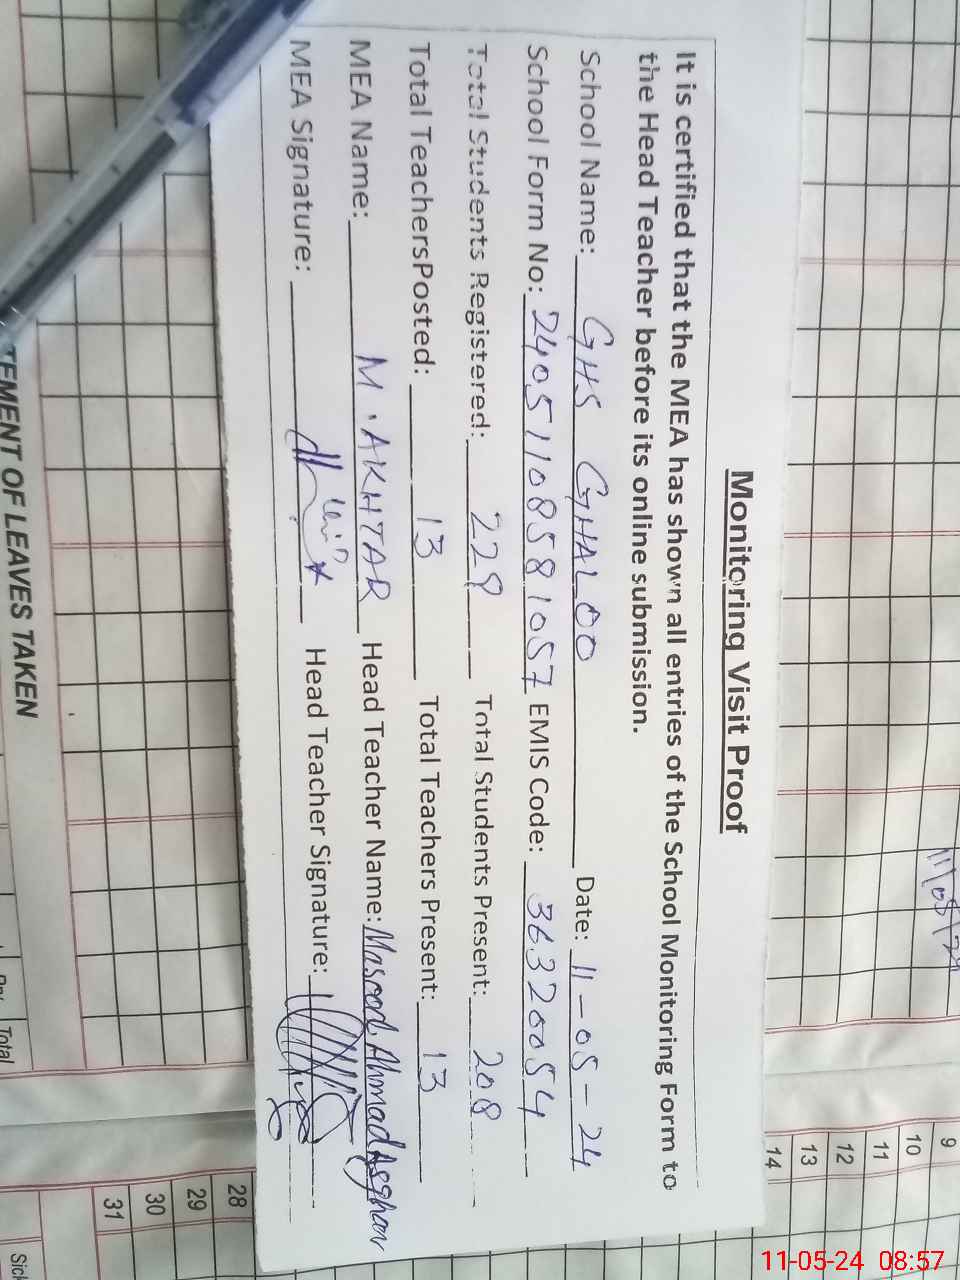 Monitoring Visit Proof
It is certified that the MEA has shown all entries of the School Monitoring Form to
the Head Teacher before its online submission.
School Name: GHS GHALOO Date: 11-05-24
School Form No: 24051108581057 EMIS Code: 36320054
Total Students Registered: 228 Total Students Present: 208
Total TeachersPosted: 13 Total Teachers Present: 13
MEA Name: M. AKHTAR Head Teacher Name: Masood Ahmad Asghar
MEA Signature: Head Teacher Signature:
TEMENT OF LEAVES TAKEN
Total
Sick
9
10
11
12
13
14
28
29
30
31
11-05-24 08:57